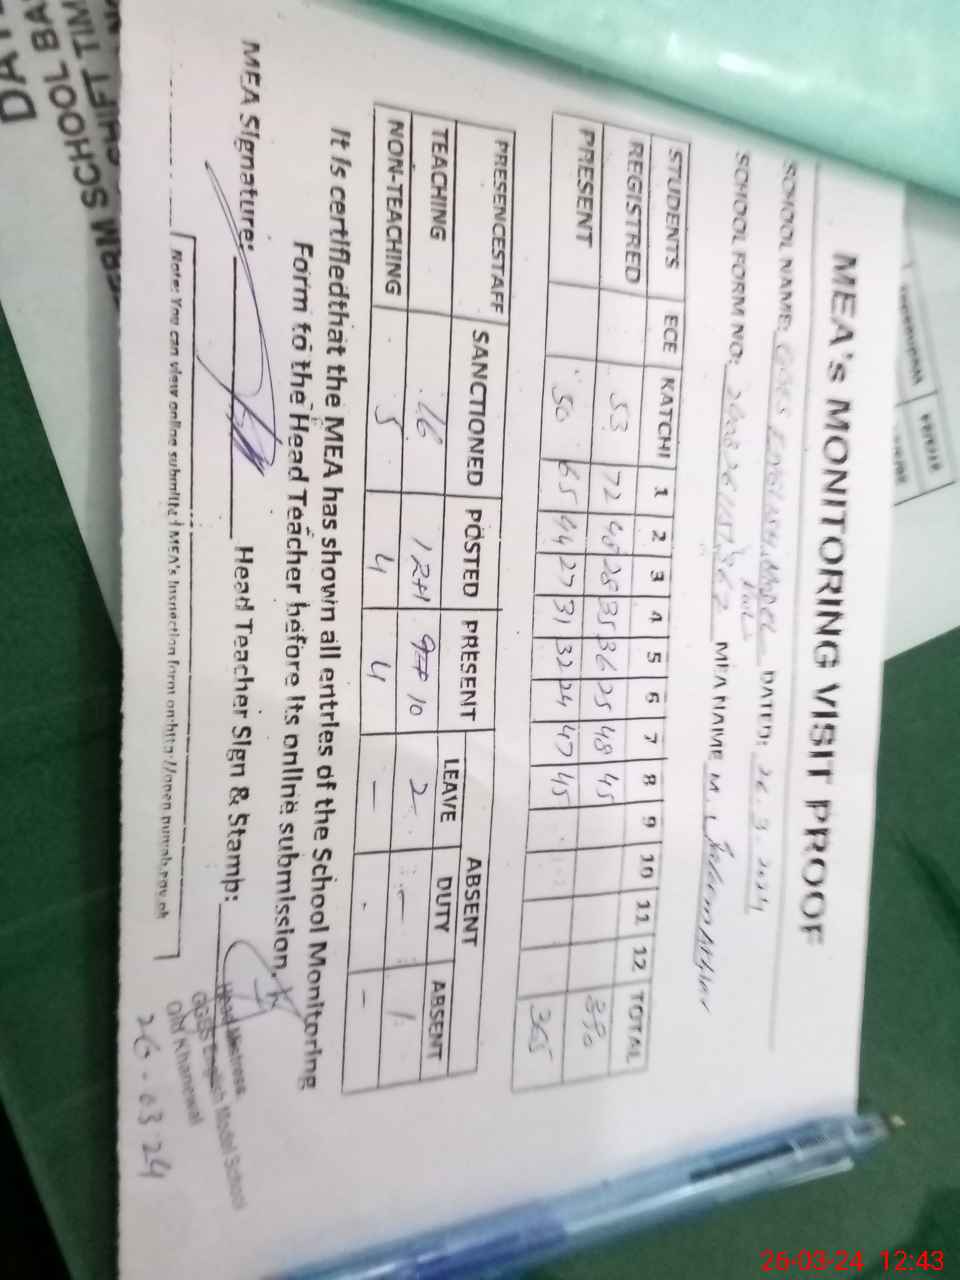 MEA's MONITORING VISIT PROOF
SCHOOL NAME: GGES ENGLISH MODEL DATED: 26.3.2024
SCHOOL FORM NO: MEA NAME M.
STUDENTS ECE KATCHI 1 2 3 4 5 6 7 8 9 10 11 12 TOTAL
REGISTRED 53 72 48 28 35 36 25 48 45 390
PRESENT 50 65 44 27 31 32 24 47 45 365
PRESENCESTAFF SANCTIONED POSTED PRESENT ABSENT
LEAVE DUTY ABSENT
TEACHING 16 12+1 10 2 - 1
NON-TEACHING 5 4 4 - - -
It is certifiedthat the MEA has shown all entries of the School Monitoring
Form to the Head Teacher before its online submission.
MEA Signature: Head Teacher Sign & Stamp:
Head Mistress
GGES English Model School
Old Khanewal
26-03-24
Note: You can view online submitted MEA's Inspection form on:http://open.punjab.gov.pk
SCHOOL BA
SHIFT TIM
SCHOOL
26-03-24 12:43